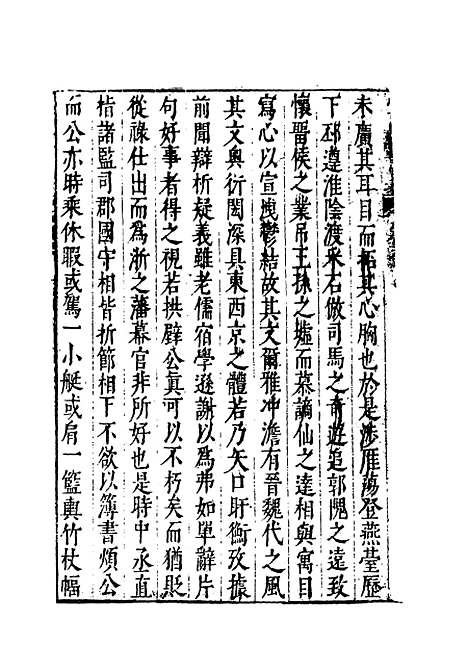 未廣其耳目而拓其心胸也於是渉雁蕩登燕臺歷
下邳遵淮陰渡采石倣司馬之奇遊追郭隗之遠致
懷晉侯之業吊王孫之墟而慕謫仙之達相與寓目
寫心以宣洩鬱結故其文爾雅冲澹有晉魏代之風
其文奥衍閎深具東西京之體若乃矢口盱衡攷據
前聞辯析疑義雖老儒宿學遜謝以為弗如單辭片
句好事者得之視若拱璧公真可以不朽矣而猶貶
從祿仕出而為浙之藩幕官非所好也是時中丞直
指諸監司郡國守相皆折節相下不欲以簿書煩公
而公亦時乘休暇或駕一小艇或肩一籃輿竹杖幅